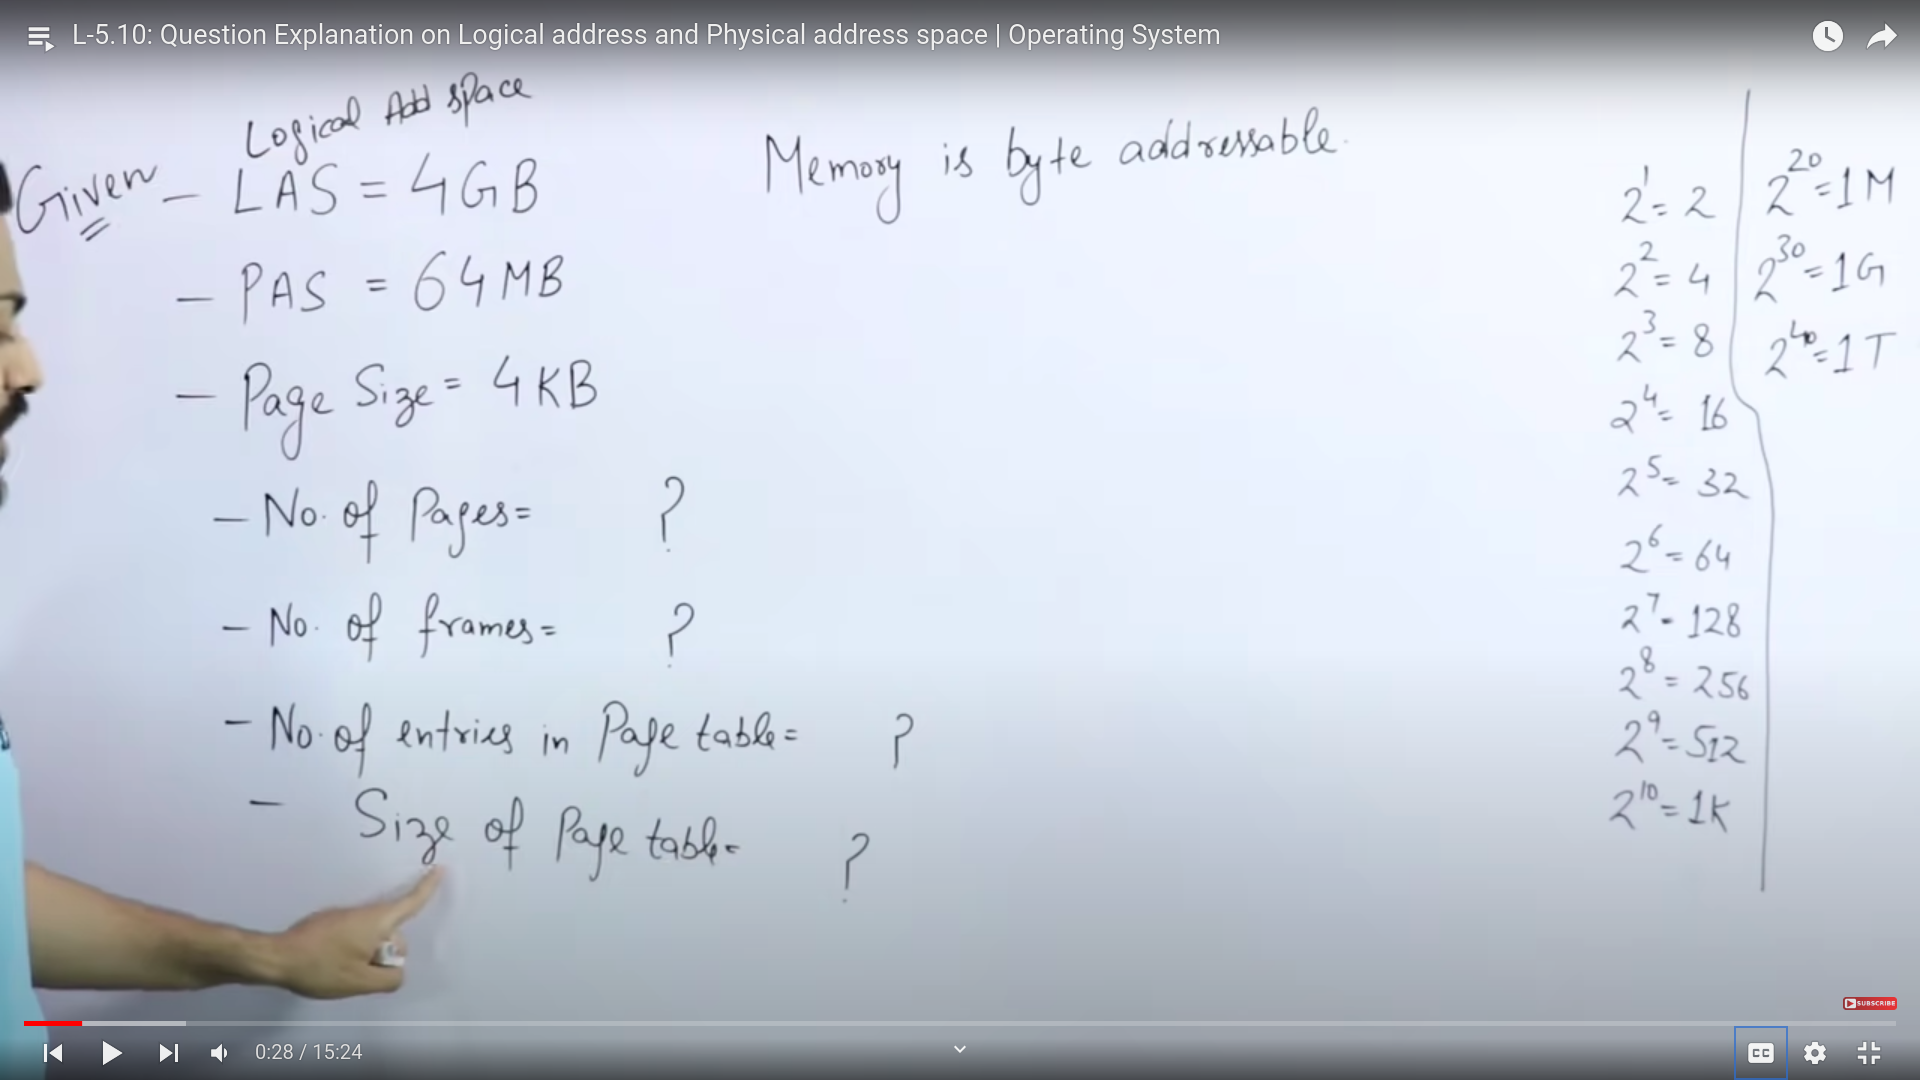 L-5.10: Question Explanation on Logical address and Physical address space | Operating System
Logical Add space
Given - LAS = 4GB
- PAS = 64MB
- Page Size = 4KB
- No. of Pages= ?
- No. of frames= ?
- No. of entries in Page table= ?
- Size of Page table= ?
Memory is byte addressable.
2¹= 2
2²= 4
2³= 8
2⁴= 16
2⁵= 32
2⁶= 64
2⁷- 128
2⁸= 256
2⁹= 512
2¹⁰=1K
2²⁰=1M
2³⁰=1G
2⁴⁰=1T
SUBSCRIBE
0:28 / 15:24
CC